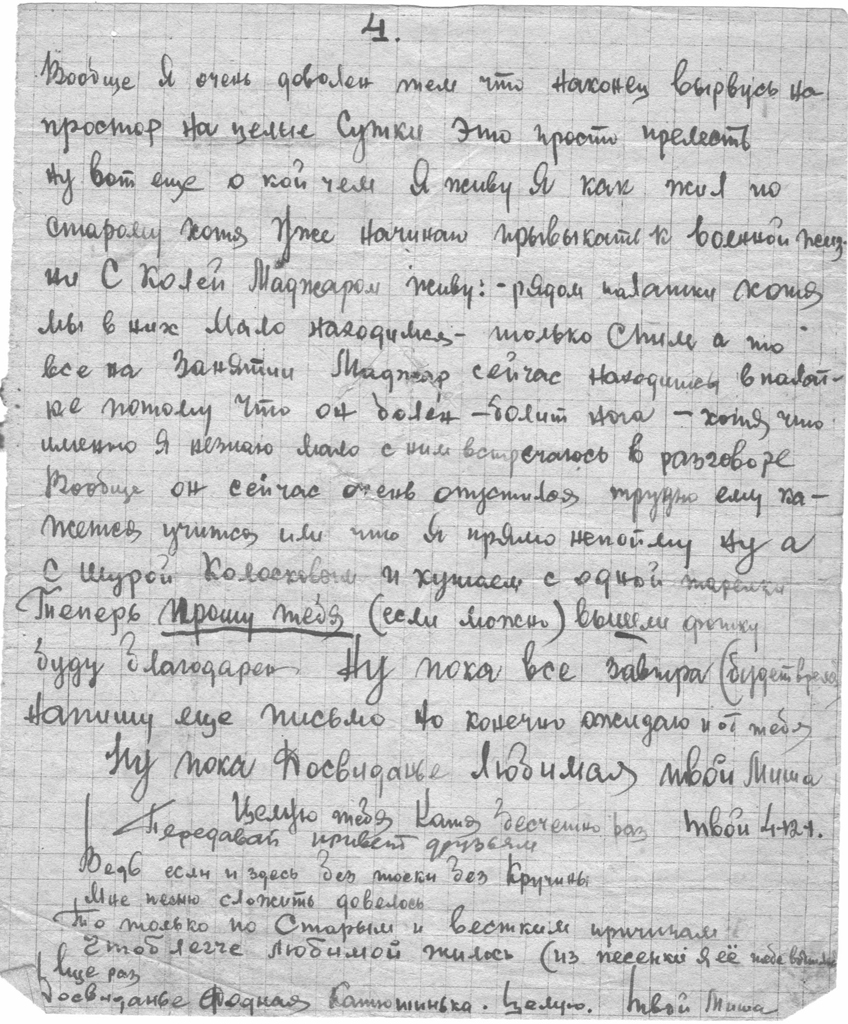 4.
Вообще я очень доволен тем что наконец вырвусь на
простор на целые Сутки это просто прелесть
ну вот еще о кой чем я живу я как жил по
старому хотя уже начинаю прывыкать к военной жиз-
ни С Колей Маджаром живу:-рядом палатки хотя
мы в них мало находимся- только Спим а то
все на Занятии Маджар сейчас находится в палат-
ке потому что он болен -болит нога - хотя что
именно я незнаю мало с ним встречаюсь в разговоре
Вообще он сейчас очень опустился трудно ему ка-
жется учится или что я прямо непойму ну а
с Шурой Колосковым и кушаем с одной тарелки
Теперь прошу тебя (если можно) вышли
буду благодарен Ну пока все завтра (будет время)
напишу еще письмо но конечно ожидаю и от тебя
Ну пока Досвиданье Любимая твой Миша
Целую тебя Катя бесчетно раз твой
Передавай привет друзьям
Ведь если и здесь без тоски без Кручины
Мне песню сложить довелось
То только по Старым и вестким причинам
Чтоб легче любимой жилось (из песенки я её тебе
Еще раз
Досвиданье Родная Катюшинька. Целую. Твой Миша